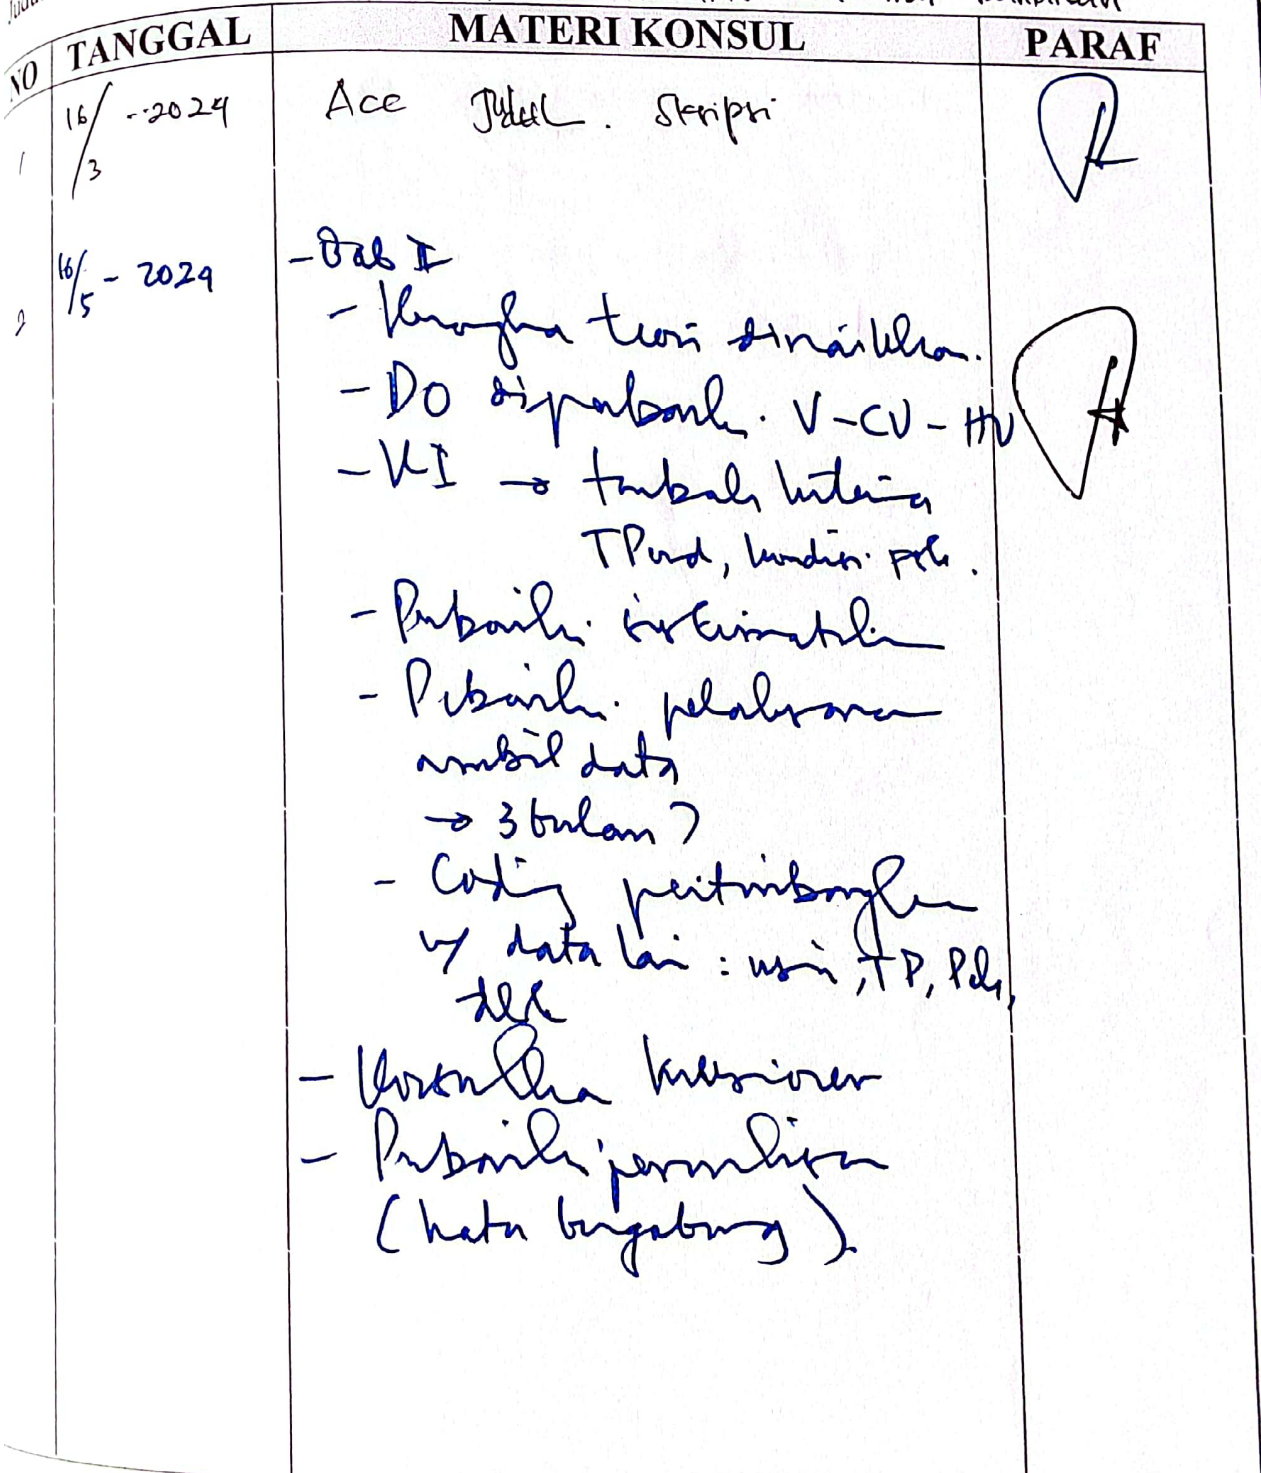 NO TANGGAL MATERI KONSUL PARAF
1 16/3 - 2024 Acc Judul. Skripsi
2 16/5 - 2024 - Bab II
- Kerangka teori dinaikkan.
- DO diperbaiki. V-CV-HV
- KI → tambah kriteria
TPwd, kondisi
- Perbaiki sistematika
- Perbaiki pelaksanaan
ambil data
→ 3 bulan?
- Coding pertimbangkan
data lain: usia, TP, 
dll
- Konsulkan kuesioner
- Perbaiki penulisan
(kata bergabung).